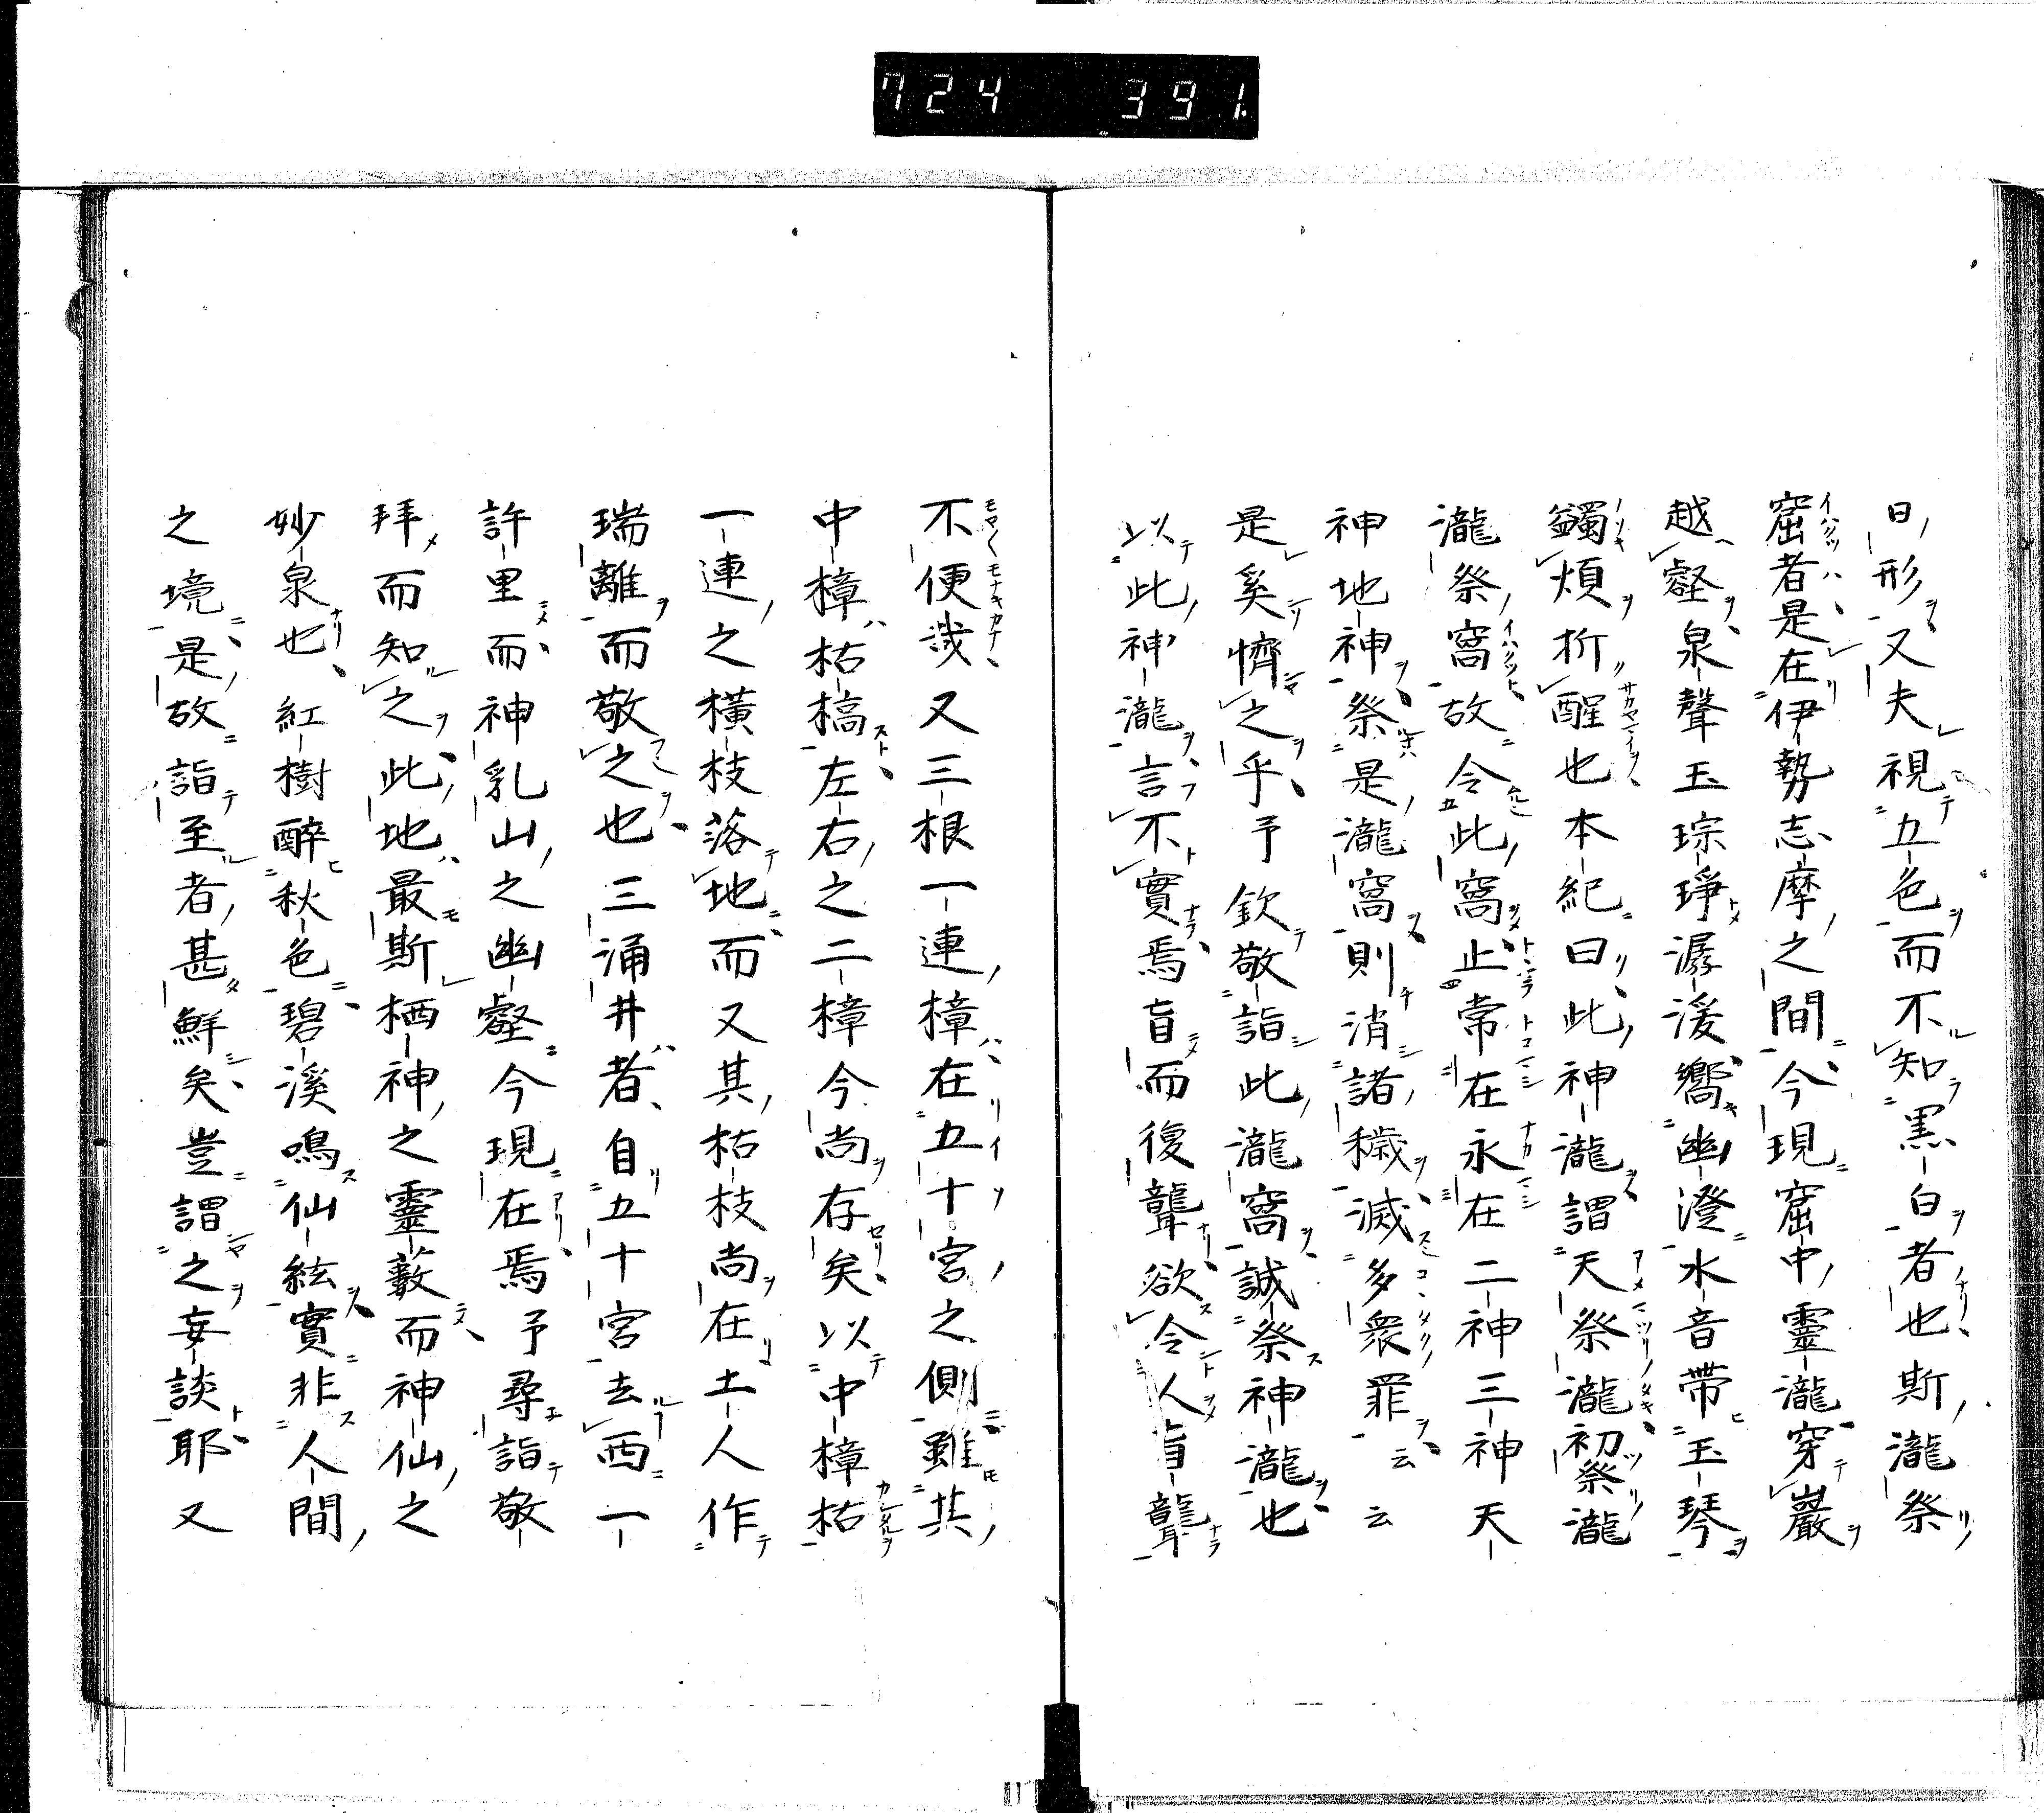 724 391.
日形又夫視五色而不知黒白者也斯瀧祭
窟者是在伊勢志摩之間今現窟中靈瀧穿巖
越壑泉聲玉琮琤潺湲嚮幽澄水音帶玉琴
蠲煩析酲也本紀曰此神瀧謂天祭瀧初祭瀧
瀧祭窩故令此窩止常在永在二神三神天
神地神祭是瀧窩則消諸穢滅多衆罪云云
是奚懠之乎予欽敬詣此瀧窩誠祭神瀧也
以此神瀧言不實焉盲而復聾欲令人盲聾
不便哉又三根一連樟在五十宮之側雖其
中樟枯槁左右之二樟今尚存矣以中樟枯
一連之橫枝落地而又其枯枝尚在土人作
瑞離而敬之也三涌井者自五十宮去西一
許里而神乳山之幽壑今現在焉予尋詣敬
拜而知之此地最斯栖神之靈藪而神仙之
妙泉也紅樹醉秋色碧溪鳴仙絃實非人間
之境是故詣至者甚鮮矣豈謂之妄談耶又